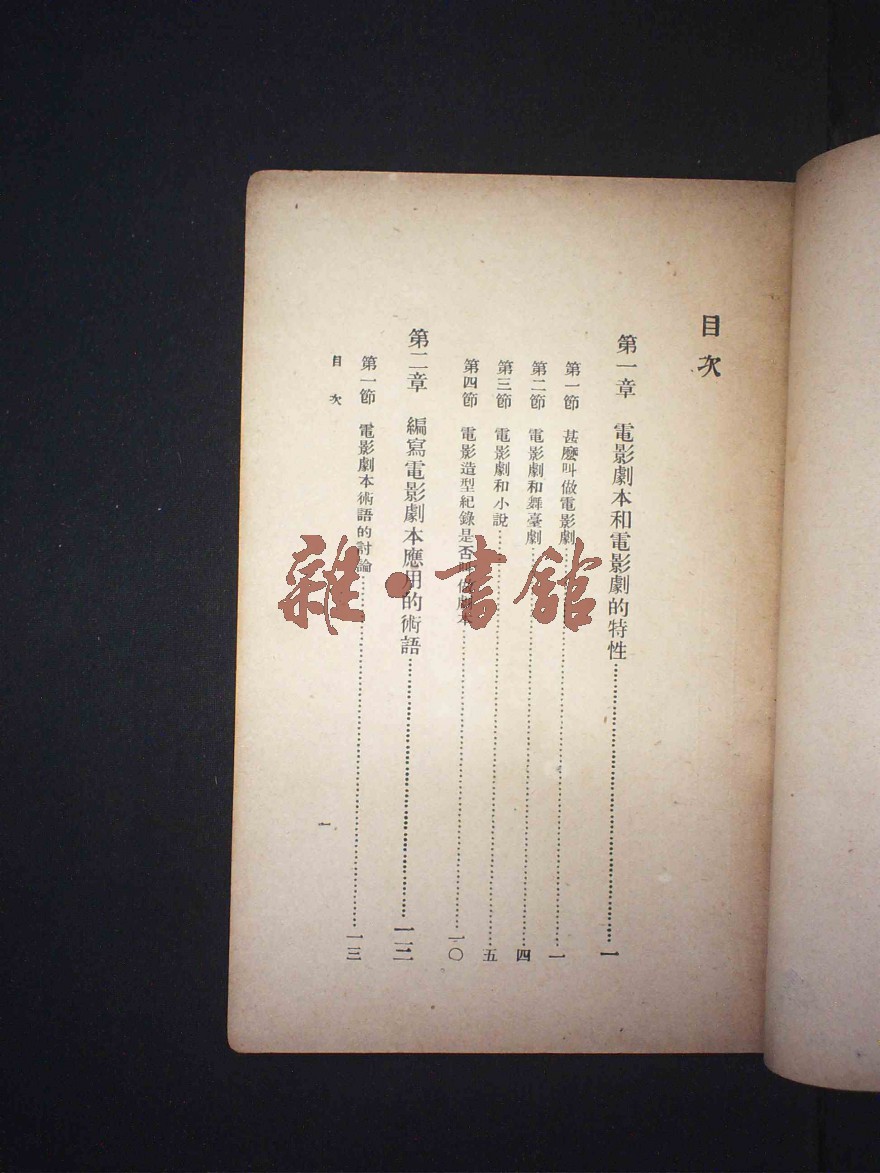 目次
第一章 電影劇本和電影劇的特性……一
第一節 甚麽叫做電影劇……一
第二節 電影劇和舞臺劇……四
第三節 電影劇和小說……五
第四節 電影造型紀錄是否叫做劇本……一〇
第二章 編寫電影劇本應用的術語……一三
第一節 電影劇本術語的討論……一三
目次
一
雜·書館